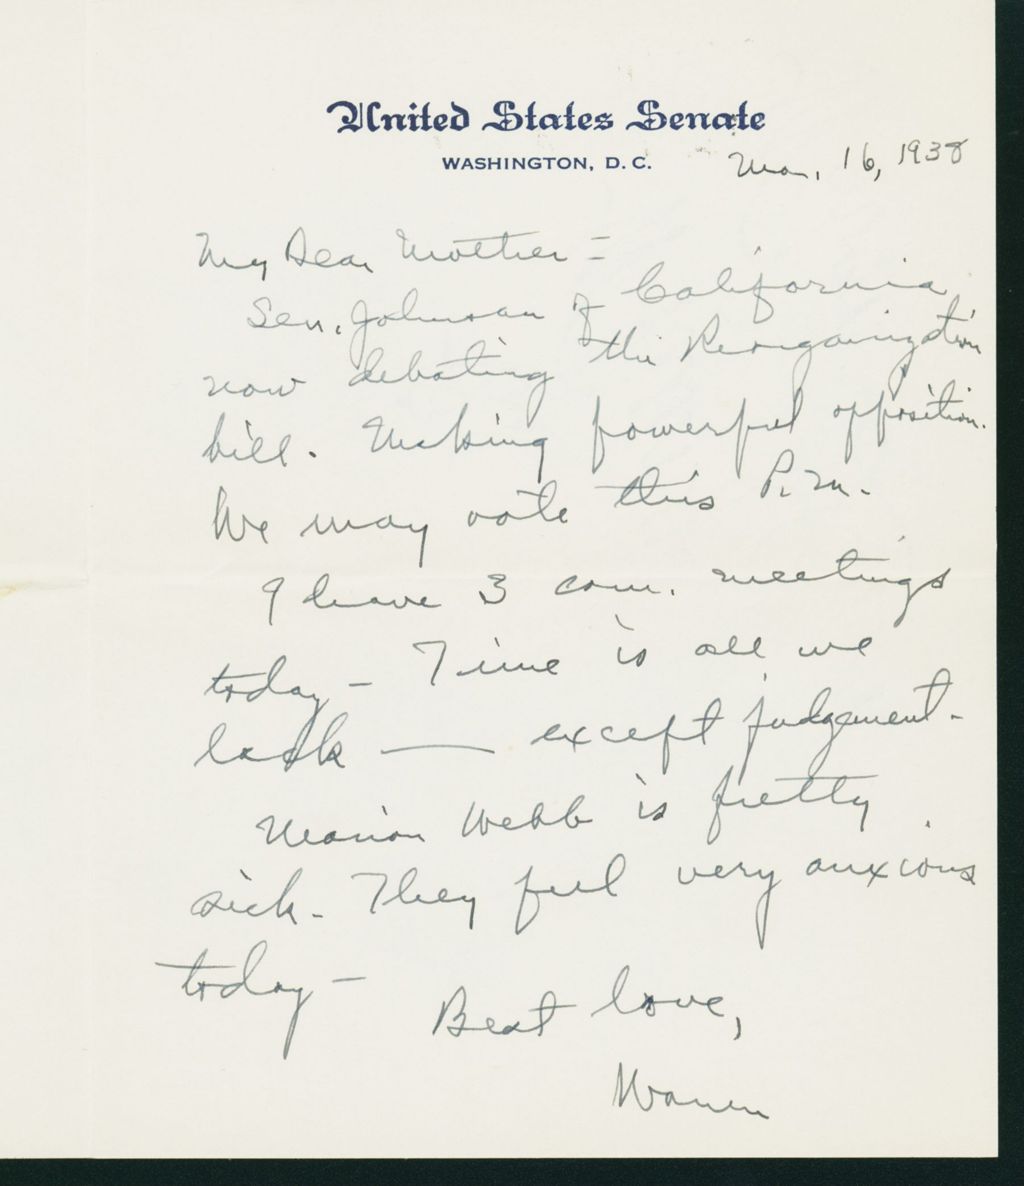 United States Senate
WASHINGTON, D. C.
Mar. 16, 1938
My Dear Mother =
Sen. Johnson of California
now debating the Reorganization
bill. Making powerful opposition.
We may vote this P.M.
I have 3 com. meetings
today - Time is all we
lack — except judgement -
Marion Webb is pretty
sick - They feel very anxious
today -
Best love,
Warren